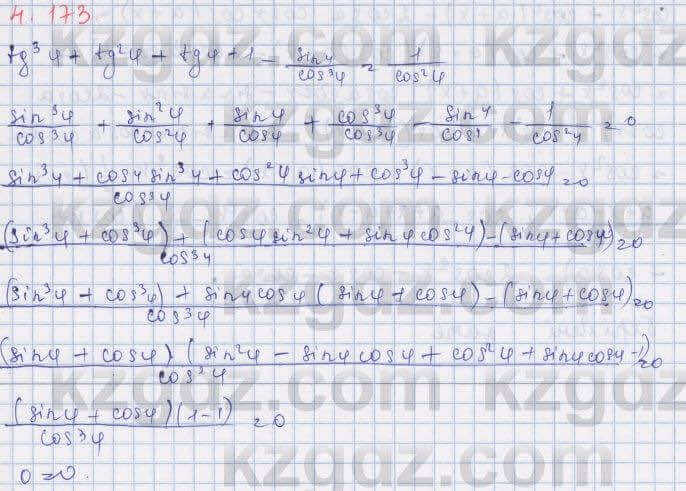 4.173
tg³φ + tg²φ + tgφ + 1 - sinφ/cos³φ = 1/cos²φ
sin³φ/cos³φ + sin²φ/cos²φ + sinφ/cosφ + cos³φ/cos³φ - sinφ/cos³φ - 1/cos²φ = 0
(sin³φ + cosφ sin³φ + cos²φ sinφ + cos³φ - sinφ - cosφ)/cos³φ = 0
((sin³φ + cos³φ) + (cosφ sin²φ + sinφ cos²φ) - (sinφ + cosφ))/cos³φ = 0
((sin³φ + cos³φ) + sinφ cosφ (sinφ + cosφ) - (sinφ + cosφ))/cos³φ = 0
(sinφ + cosφ)(sin²φ - sinφ cosφ + cos²φ + sinφ cosφ - 1)/cos³φ = 0
(sinφ + cosφ)(1-1)/cos³φ = 0
0 = 0.
kzgdz.com